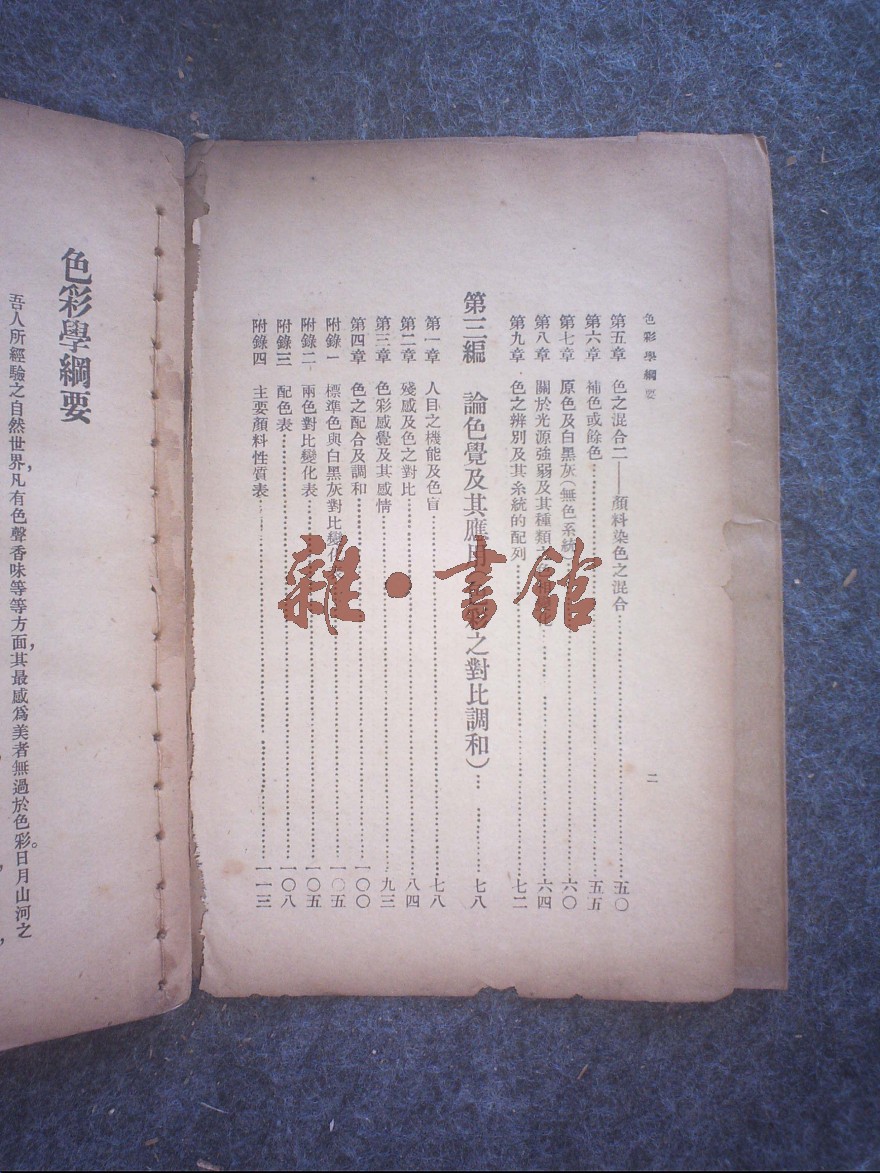 色彩學綱要
二
第五章　色之混合二——顏料染色之混合……五〇
第六章　補色或餘色……五五
第七章　原色及白黑灰(無色系統……六〇
第八章　關於光源強弱及其種類……六四
第九章　色之辨別及其系統的配列……七二
第三編　論色覺及其應用　　之對比調和)……七八
第一章　人目之機能及色盲……七八
第二章　殘感及色之對比……八四
第三章　色彩感覺及其感情……九三
第四章　色之配合及調和……一〇〇
附錄一　標準色與白黑灰對比變化……一〇五
附錄二　兩色對比變化表……一〇五
附錄三　配色表……一〇八
附錄四　主要顏料性質表……一一三
雜·書館
色彩學綱要
吾人所經驗之自然世界，凡有色聲香味等等方面，其最感爲美者無過於色彩。日月山河之